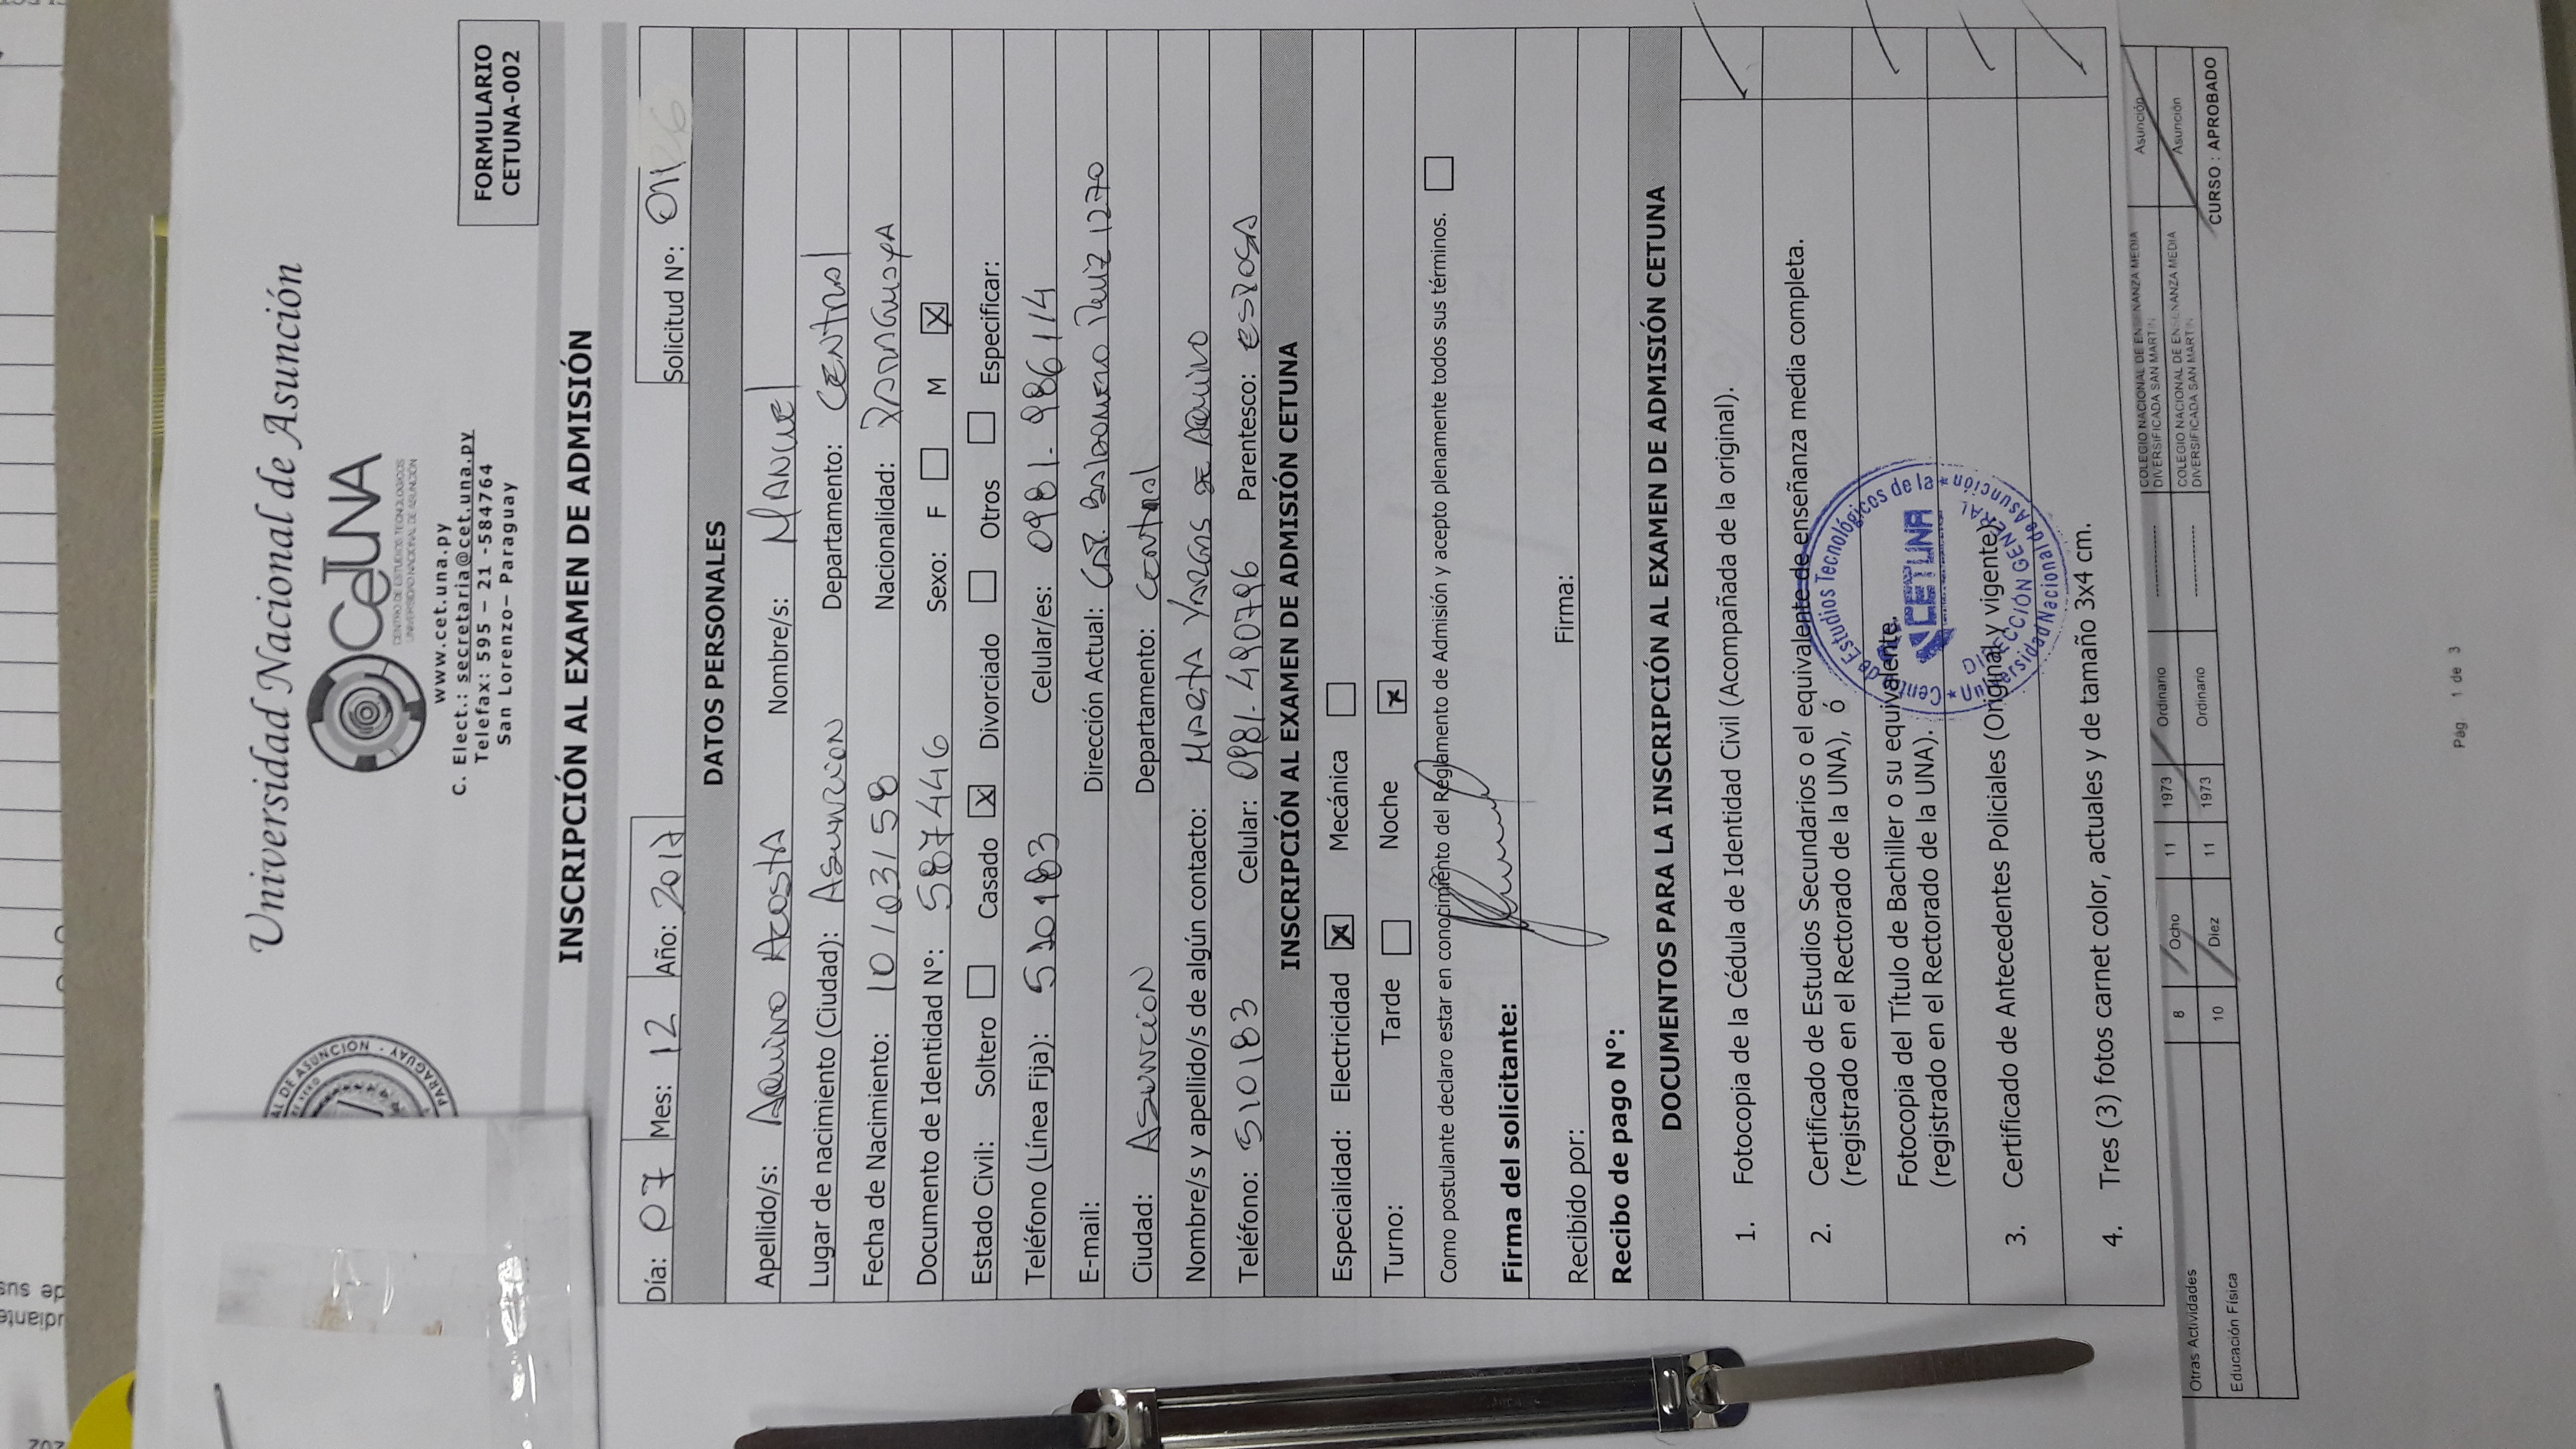 udiante
de sus
Universidad Nacional de Asunción
CETUNA
CENTRO DE ESTUDIOS TECNOLOGICOS
UNIVERSIDAD NACIONAL DE ASUNCIÓN
DE ASUNCIÓN
PARAGUAY
www.cet.una.py
C. Elect.: secretaria@cet.una.py
Telefax: 595 – 21 -584764
San Lorenzo– Paraguay
FORMULARIO
CETUNA-002
INSCRIPCIÓN AL EXAMEN DE ADMISIÓN
Día: 07 Mes: 12 Año: 2017 Solicitud Nº: 011
DATOS PERSONALES
Apellido/s: Aquino Acosta Nombre/s: MANUEL
Lugar de nacimiento (Ciudad): ASUNCION Departamento: CENTRAL
Fecha de Nacimiento: 10/03/58 Nacionalidad: PARAGUAYA
Documento de Identidad Nº: 587446 Sexo: F M X
Estado Civil: Soltero Casado X Divorciado Otros Especificar:
Teléfono (Línea Fija): 510183 Celular/es: 0981. 986114
E-mail: Dirección Actual: CAP. BALDOMERO RUIZ 1270
Ciudad: ASUNCION Departamento: CENTRAL
Nombre/s y apellido/s de algún contacto: MARTA VARGAS DE AQUINO
Teléfono: 510183 Celular: 0981. 490796 Parentesco: ESPOSA
INSCRIPCIÓN AL EXAMEN DE ADMISIÓN CETUNA
Especialidad: Electricidad X Mecánica
Turno: Tarde Noche X
Como postulante declaro estar en conocimiento del Reglamento de Admisión y acepto plenamente todos sus términos.
Firma del solicitante:
Recibido por: Firma:
Recibo de pago N°:
DOCUMENTOS PARA LA INSCRIPCIÓN AL EXAMEN DE ADMISIÓN CETUNA
1. Fotocopia de la Cédula de Identidad Civil (Acompañada de la original).
2. Certificado de Estudios Secundarios o el equivalente de enseñanza media completa.
(registrado en el Rectorado de la UNA), ó
Fotocopia del Título de Bachiller o su equivalente.
(registrado en el Rectorado de la UNA).
3. Certificado de Antecedentes Policiales (Original y vigente).
4. Tres (3) fotos carnet color, actuales y de tamaño 3x4 cm.
Centro de Estudios Tecnológicos de la
CETUNA
DIRECCIÓN GENERAL
Universidad Nacional de Asunción
Otras Actividades 8 Ocho 11 1973 Ordinario ------------- COLEGIO NACIONAL DE ENSEÑANZA MEDIA DIVERSIFICADA SAN MARTIN Asunción
Educación Física 10 Diez 11 1973 Ordinario ------------- COLEGIO NACIONAL DE ENSEÑANZA MEDIA DIVERSIFICADA SAN MARTIN Asunción
CURSO : APROBADO
Pág. 1 de 3